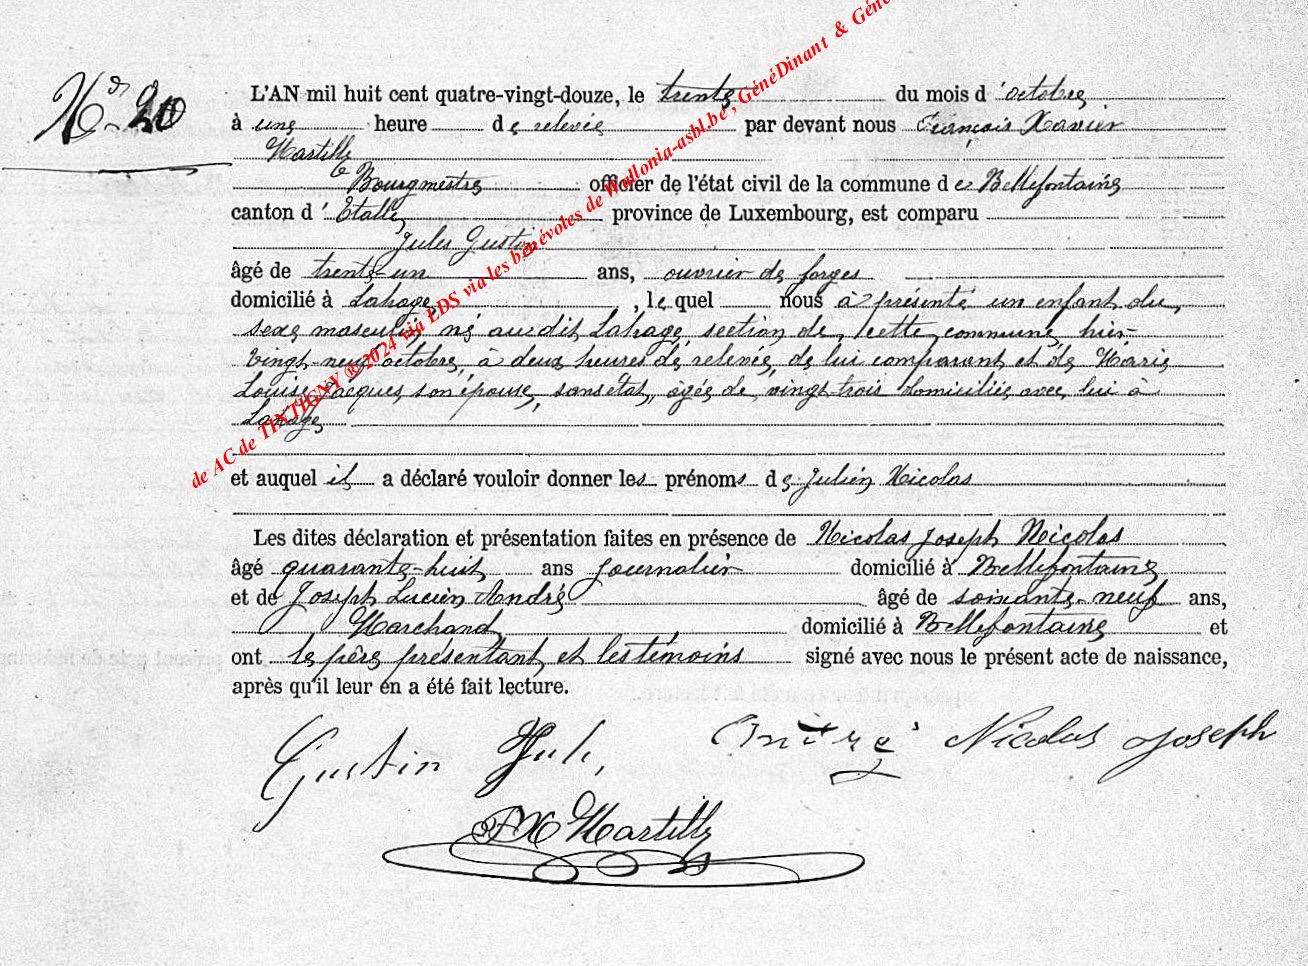 No 20
L'AN mil huit cent quatre-vingt-douze, le trente du mois d'octobre
à une heure de relevée par devant nous François Xavier
Martilly
Bourgmestre officier de l'état civil de la commune de Bellefontaine
canton d'Etalle province de Luxembourg, est comparu
Jules Gustin
âgé de trente-un ans, ouvrier de forges
domicilié à Lahage, lequel nous a présenté un enfant du
sexe masculin, né audit Lahage, section de cette commune, hier
vingt-neuf octobre, à deux heures de relevée, de lui comparant et de Marie
Louise Jacques son épouse, sans état, âgée de vingt-trois domiciliée avec lui à
Lahage,
et auquel il a déclaré vouloir donner les prénoms de Julien Nicolas
Les dites déclaration et présentation faites en présence de Nicolas Joseph Nicolas
âgé quarante-huit ans journalier domicilié à Bellefontaine
et de Joseph Lucien André âgé de soixante-neuf ans,
Marchand domicilié à Bellefontaine et
ont le père présentant et les témoins signé avec nous le présent acte de naissance,
après qu'il leur en a été fait lecture.
Gustin Jule, André Nicolas Joseph
FX Martilly
de AC de TINTIGNY ® 2024 via EDS via les bénévoles de Wallonia-asbl.be, GénéDinant & Géné